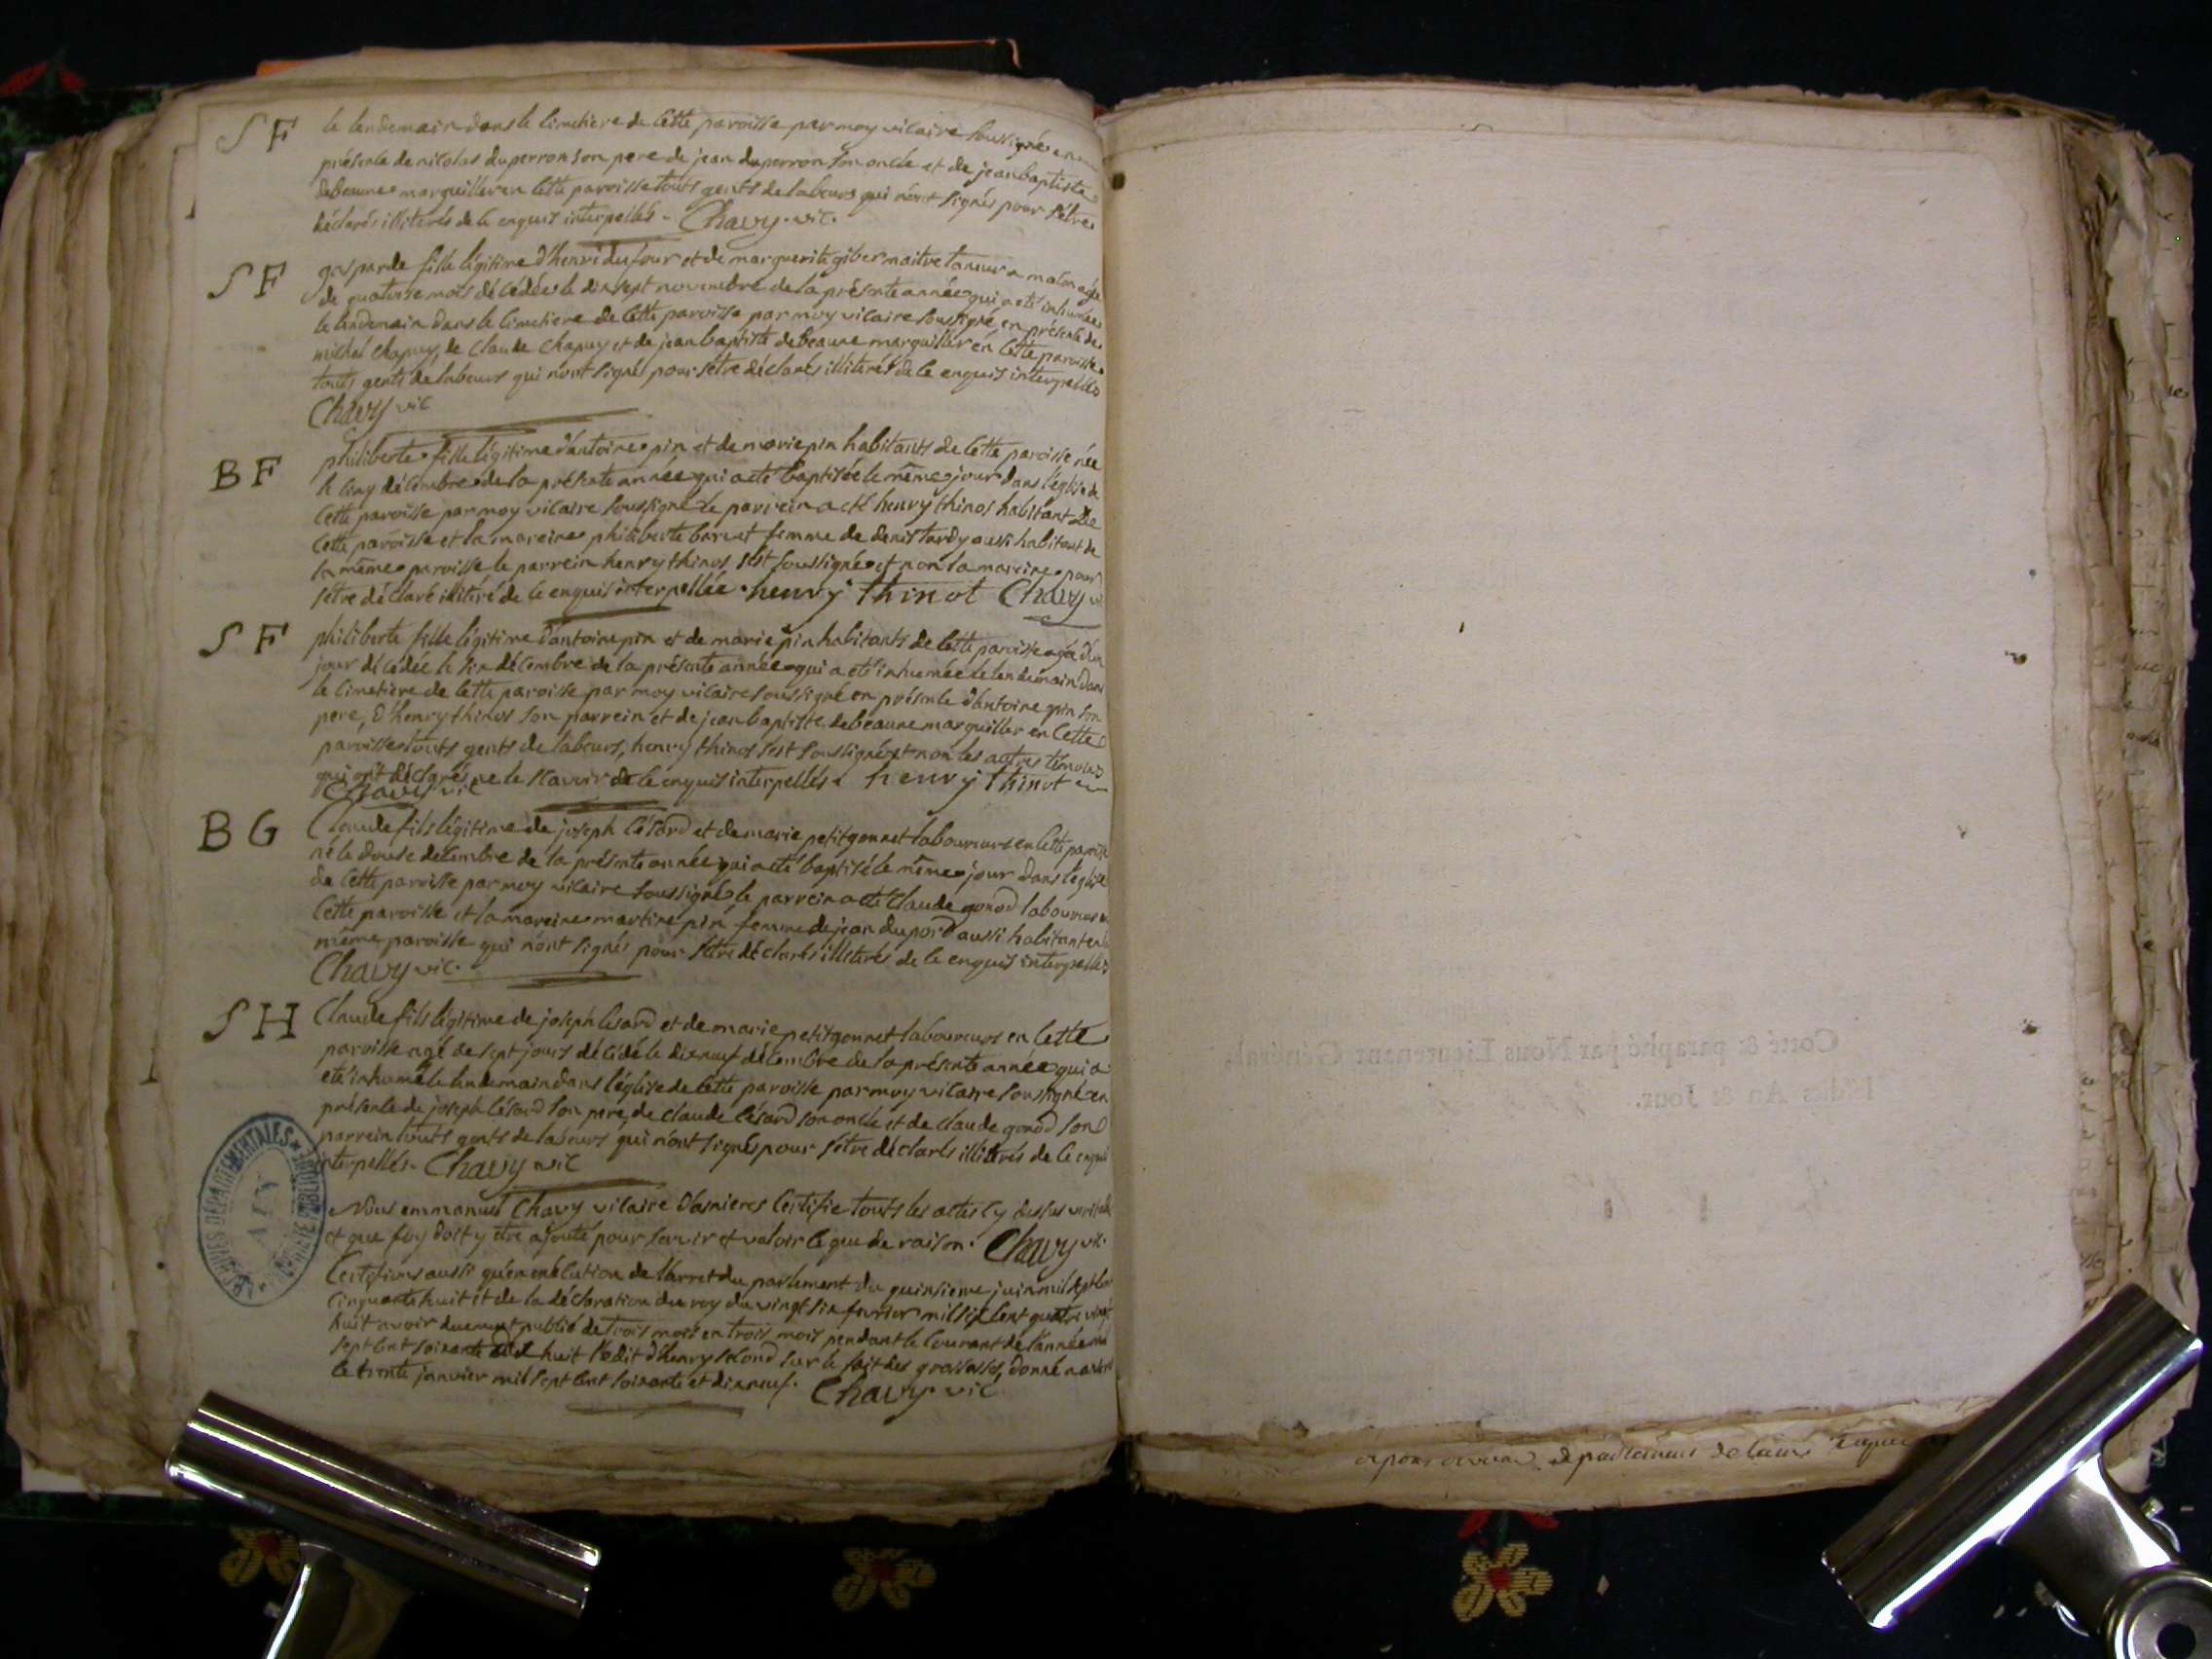 SF le lendemain dans le cimetiere de cette paroisse par moy vicaire soussigné en
présence de nicolas duperron son pere de jean duperron son oncle et de jean baptiste
debeaune marguiller en cette paroisse touts gents de labeurs qui n'ont signés pour s'etre
déclarés illiterés de ce enquis interpellés. Chavy. vic.
SF gasparde fille légitime d'henri dufour et de marguerite giber maitre taneur a macon agée
de quatorse mois décédée le dix sept novembre de la présente année qui a eté inhumée
le lendemain dans le cimetiere de cette paroisse par moy vicaire soussigné, en présence de
michel chapuy, de claude chapuy et de jean baptiste debeaune marguiller en cette paroisse
touts gents de labeurs qui n'ont signé pour s'etre déclarés illiterés de ce enquis interpellés
Chavy vic
BF philiberte fille légitime d'antoine pin et de marie pin habitants de cette paroisse née
le cinq décembre de la présente année qui a eté baptisée le même jour dans l'église de
cette paroisse par moy vicaire soussigné le parrein a eté henry thinos habitant de
cette paroisse et la mareine philiberte baruet femme de denis tardy aussi habitant de
la même paroisse le parrein henry thinos s'est soussigné et non la mareine pour
s'etre déclaré illitéré de ce enquis interpellée. henry thinot Chavy vi
SF philiberte fille légitime d'antoine pin et de marie pin habitants de cette paroisse agé d'un
jour décédée le six décembre de la présente année qui a eté inhumée le lendemain dans
le cimetiere de cette paroisse par moy vicaire soussigné en présence d'antoine pin son
pere, d'henry thinos son parrein et de jean baptiste debeaune marguiller en cette
paroisse touts gents de labeurs, henry thinos s'est soussigné et non les autres témoins
qui ont déclarés ne le scavoir de ce enquis interpellés. henry thinot
Chavy vic
BG Claude fils légitime de joseph lésard et de marie petitgonnet laboureurs en cette paroisse
né le douse decembre de la présente année qui a eté baptisé le même jour dans l'église
de cette paroisse par moy vicaire soussigné, le parrein a eté claude gonod laboureur en
cette paroisse et la mareine martine pin femme de jean dupord aussi habitant en la
même paroisse qui n'ont signés pour s'etre déclarés illiterés de ce enquis interpellés
Chavy vic.
SH Claude fils légitime de joseph lesard et de marie petitgonnet laboureurs en cette
paroisse agé de sept jours décédé le dixneuf décembre de la présente année qui a
eté inhumé le lendemain dans l'église de cette paroisse par moy vicaire soussigné en
présence de joseph lésard son pere, de claude lésard son oncle et de claude gonod son
parrein touts gents de labeurs qui n'ont signés pour s'etre déclarés illiterés de ce enquis
interpellés. Chavy vic
Nous emmanuel Chavy vicaire d'asnieres certifie touts les actes cy dessus veritable
et que foy doit y etre ajouté pour servir et valoir ce que de raison. Chavy vic.
Certifions aussi qu'en exécution de l'arret du parlement du quinsieme juin mil sept cent
cinquante huit et de la déclaration du roy du vingt six fevrier mil six cent quatre vingt
huit avoir duement publié de trois mois en trois mois pendant le courant de l'année mil
sept cent soixante dix huit l'edit d'henry second sur le fait des grossesses, donné a asnieres
le trente janvier mil sept cent soixante et dixneuf. Chavy. vic
ARCHIVES DÉPARTEMENTALES
AIN
Cotté & paraphé par Nous Lieutenant Général,
lesdits An & Jour.
departement de l'ain